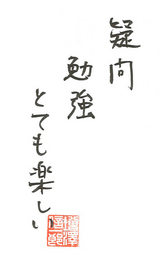 疑問
勉強
とても楽しい